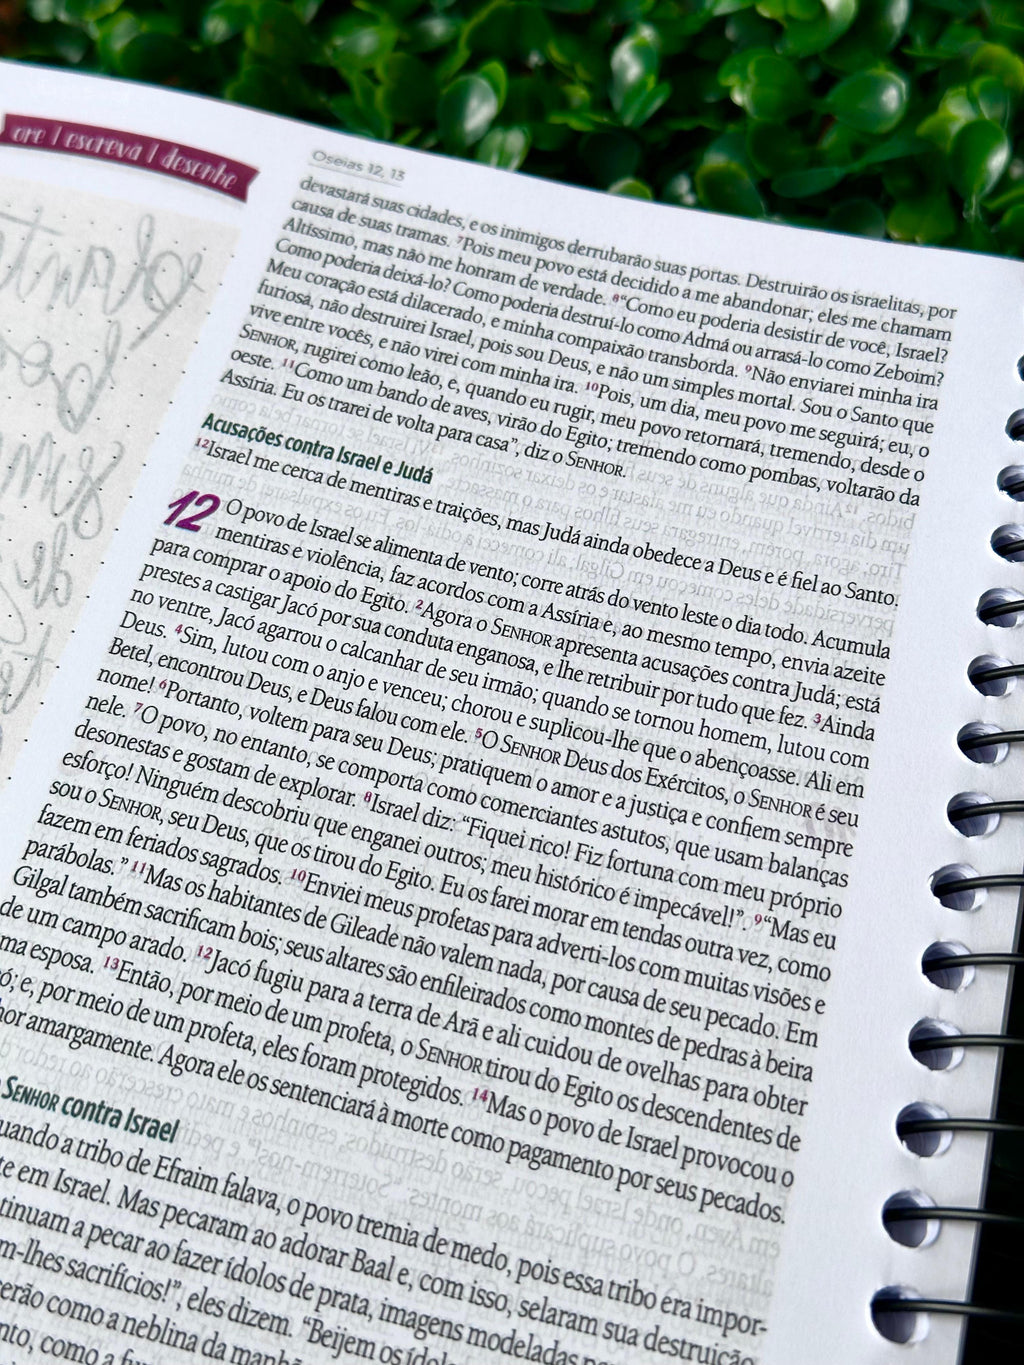 ore | escreva | desenhe
Oseias 12, 13
devastará suas cidades, e os inimigos derrubarão suas portas. Destruirão os israelitas, por
causa de suas tramas. 7Pois meu povo está decidido a me abandonar; eles me chamam
Altíssimo, mas não me honram de verdade. 8“Como eu poderia desistir de você, Israel?
Como poderia deixá-lo? Como poderia destruí-lo como Admá ou arrasá-lo como Zeboim?
Meu coração está dilacerado, e minha compaixão transborda. 9Não enviarei minha ira
furiosa, não destruirei Israel, pois sou Deus, e não um simples mortal. Sou o Santo que
vive entre vocês, e não virei com minha ira. 10Pois, um dia, meu povo me seguirá; eu, o
SENHOR, rugirei como leão, e, quando eu rugir, meu povo retornará, tremendo, desde o
oeste. 11Como um bando de aves, virão do Egito; tremendo como pombas, voltarão da
Assíria. Eu os trarei de volta para casa”, diz o SENHOR.
Acusações contra Israel e Judá
12Israel me cerca de mentiras e traições, mas Judá ainda obedece a Deus e é fiel ao Santo.
12 O povo de Israel se alimenta de vento; corre atrás do vento leste o dia todo. Acumula
mentiras e violência, faz acordos com a Assíria e, ao mesmo tempo, envia azeite
para comprar o apoio do Egito. 2Agora o SENHOR apresenta acusações contra Judá; está
prestes a castigar Jacó por sua conduta enganosa, e lhe retribuir por tudo que fez. 3Ainda
no ventre, Jacó agarrou o calcanhar de seu irmão; quando se tornou homem, lutou com
Deus. 4Sim, lutou com o anjo e venceu; chorou e suplicou-lhe que o abençoasse. Ali em
Betel, encontrou Deus, e Deus falou com ele. 5O SENHOR Deus dos Exércitos, o SENHOR é seu
nome! 6Portanto, voltem para seu Deus; pratiquem o amor e a justiça e confiem sempre
nele. 7O povo, no entanto, se comporta como comerciantes astutos, que usam balanças
desonestas e gostam de explorar. 8Israel diz: “Fiquei rico! Fiz fortuna com meu próprio
esforço! Ninguém descobriu que enganei outros; meu histórico é impecável!”. 9“Mas eu
sou o SENHOR, seu Deus, que os tirou do Egito. Eu os farei morar em tendas outra vez, como
fazem em feriados sagrados. 10Enviei meus profetas para adverti-los com muitas visões e
parábolas.” 11Mas os habitantes de Gileade não valem nada, por causa de seu pecado. Em
Gilgal também sacrificam bois; seus altares são enfileirados como montes de pedras à beira
de um campo arado. 12Jacó fugiu para a terra de Arã e ali cuidou de ovelhas para obter
ma esposa. 13Então, por meio de um profeta, o SENHOR tirou do Egito os descendentes de
ó; e, por meio de um profeta, eles foram protegidos. 14Mas o povo de Israel provocou o
hor amargamente. Agora ele os sentenciará à morte como pagamento por seus pecados.
SENHOR contra Israel
uando a tribo de Efraim falava, o povo tremia de medo, pois essa tribo era impor-
te em Israel. Mas pecaram ao adorar Baal e, com isso, selaram sua destruição.
tinuam a pecar ao fazer ídolos de prata, imagens modeladas
m-lhes sacrifícios!”, eles dizem. “Beijem os
erão como a neblina da
nto, como a